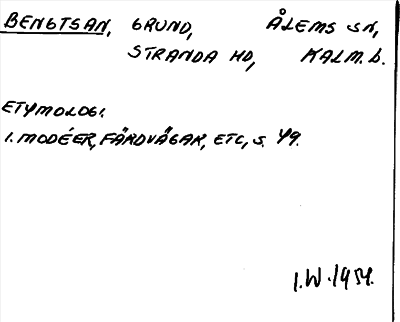 BENGTSAN, GRUND, ÅLEMS SN,
STRANDA HD, KALM. L.
ETYMOLOGI.
I. MODÉER, FÄRDVÄGAR, ETC, S. 49.
I.W. 1954.